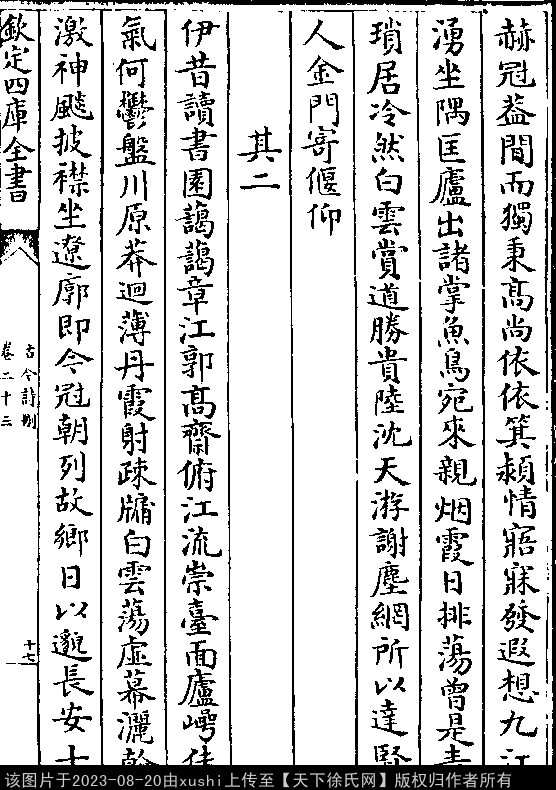 赫冠葢間而獨秉髙尚依依箕潁情寤寐發遐想九江
湧坐隅匡廬出諸掌魚鳥宛來親烟霞日排蕩曾是青
瑣居冷然白雲賞道勝貴陸沈天游謝塵網所以達賢
人金門寄偃仰
其二
伊昔讀書園藹藹章江郭髙齋俯江流崇臺面廬嶨佳
氣何鬱盤川原莽迴薄丹霞射疎牖白雲蕩虛幕灑翰
激神飈披襟坐遼廓即今冠朝列故鄉日以邈長安十
欽定四庫全書
古今詩刪
卷二十三
十七
该图片于2023-08-20由xushi上传至【天下徐氏网】版权归作者所有